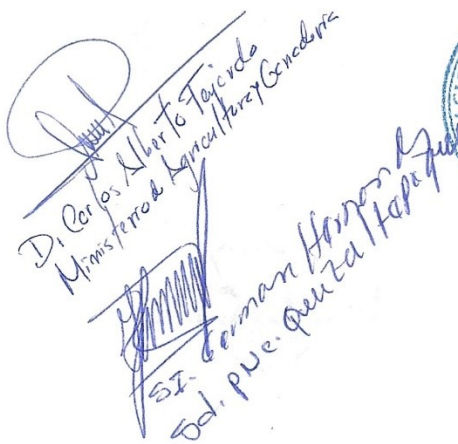 D. Carlos Alberto Tejada
Ministerio de Agricultura y Ganaderia
SI. German Hernandez
Sd. PNC. Quezaltepeque